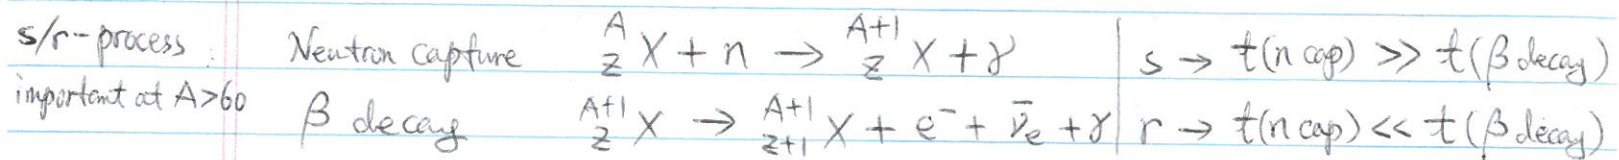 s/r-process : Neutron capture ᴬ_Z X + n → ᴬ⁺¹_Z X + γ | s → t(n cap) >> t(β decay)
important at A>60 β decay ᴬ⁺¹_Z X → ᴬ⁺¹_Z+1 X + e⁻ + ν̄ₑ + γ | r → t(n cap) << t(β decay)